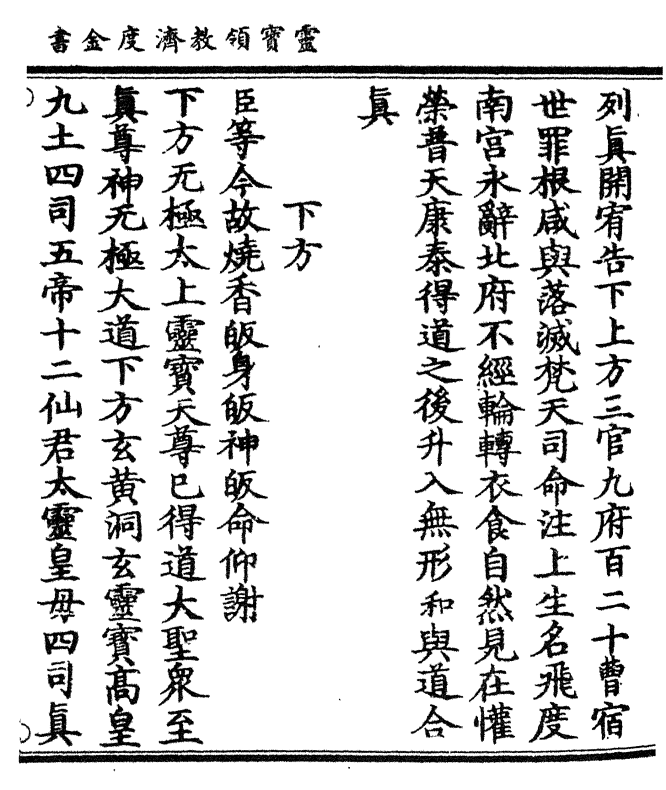 靈寳領教濟度金書
列眞開宥告下上方三官九府百二十曹宿
世罪根咸與落滅梵天司命注上生名飛度
南宮永辭北府不經輪轉衣食自然見在懽
榮普天康泰得道之後升入無形和與道合
眞
下方
臣等今故燒香皈身皈神皈命仰謝
下方无極太上靈寳天尊已得道大聖衆至
眞尊神无極大道下方玄黄洞玄靈寳高皇
九土四司五帝十二仙君太靈皇母四司眞